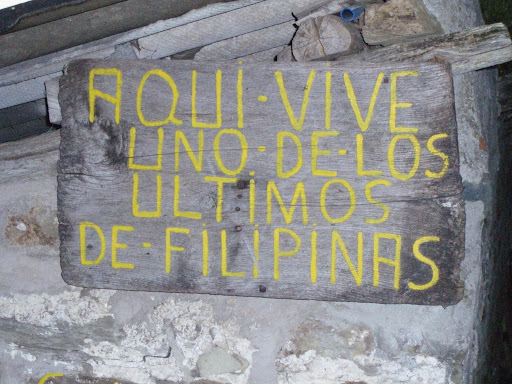 AQUI·VIVE
UNO·DE·LOS
ULTIMOS
DE·FILIPINAS